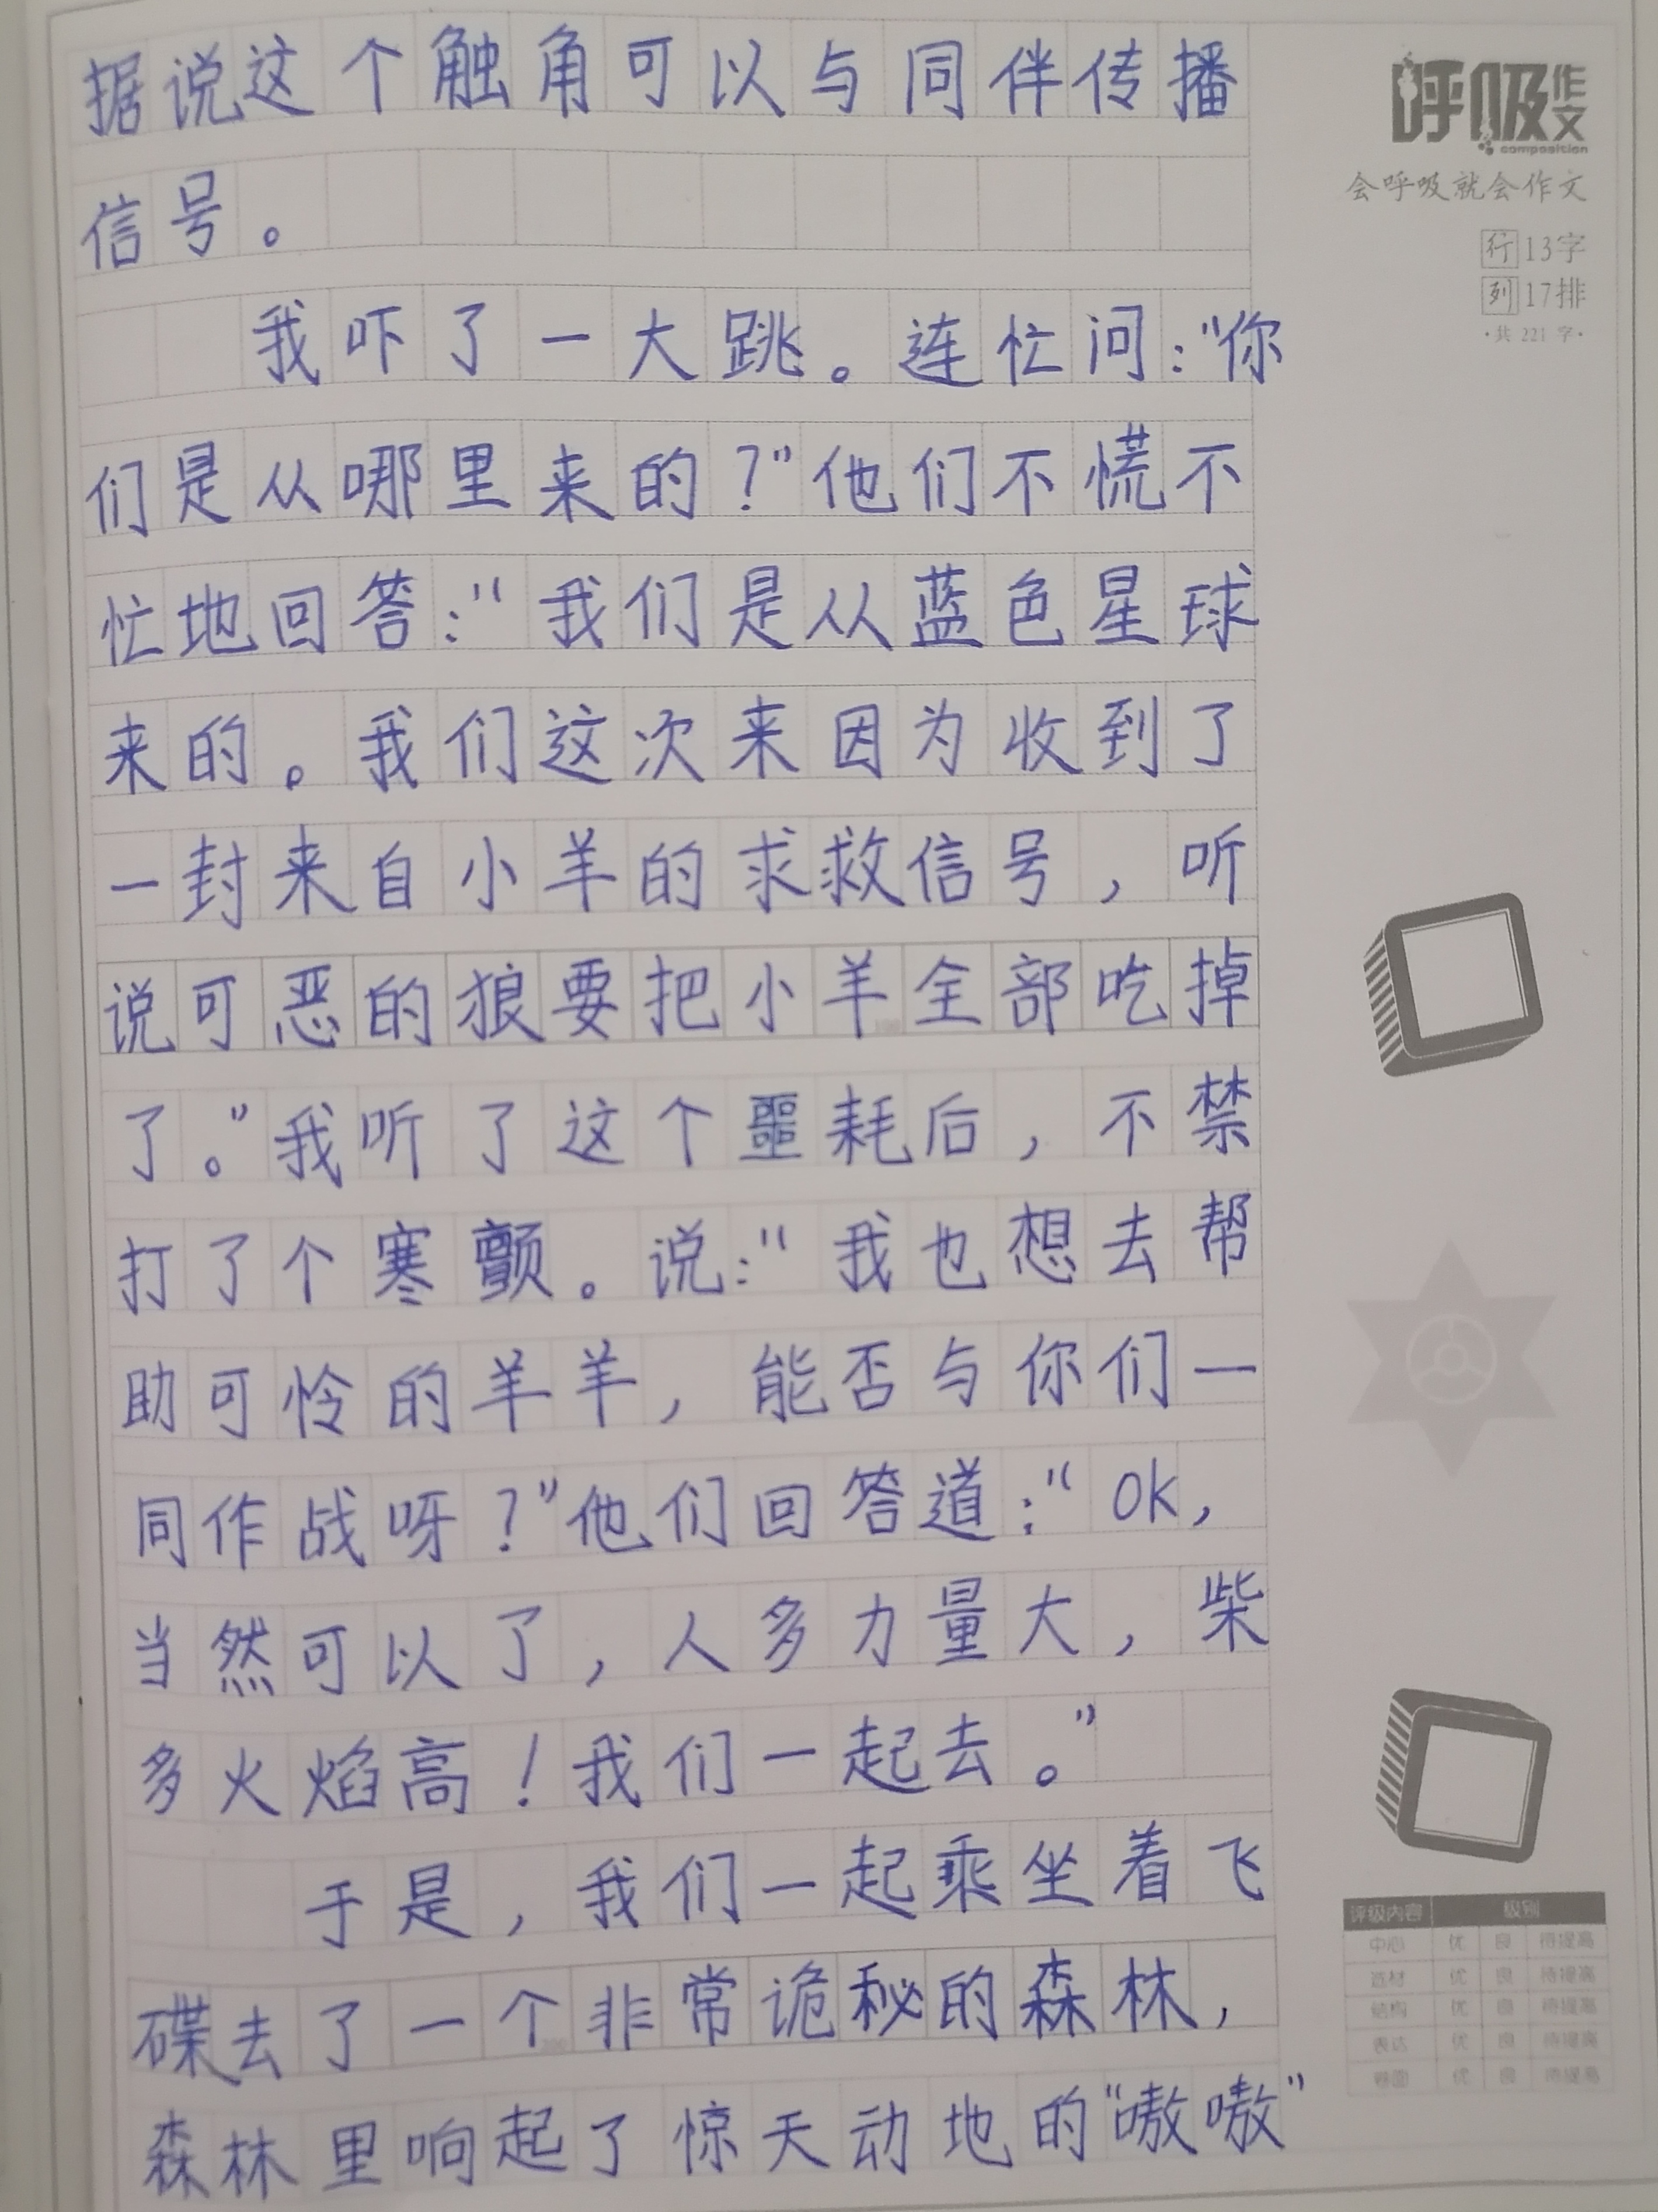 据说这个触角可以与同伴传播
信号。
我吓了一大跳。连忙问："你
们是从哪里来的？"他们不慌不
忙地回答："我们是从蓝色星球
来的。我们这次来因为收到了
一封来自小羊的求救信号，听
说可恶的狼要把小羊全部吃掉
了。"我听了这个噩耗后，不禁
打了个寒颤。说："我也想去帮
助可怜的羊羊，能否与你们一
同作战呀？"他们回答道："OK，
当然可以了，人多力量大，柴
多火焰高！我们一起去。"
于是，我们一起乘坐着飞
碟去了一个非常诡秘的森林，
森林里响起了惊天动地的"嗷嗷"
呼吸作文
composition
会呼吸就会作文
行 13字
列 17排
·共 221 字·
评级内容 级别
中心 优 良 待提高
选材 优 良 待提高
结构 优 良 待提高
表达 优 良 待提高
卷面 优 良 待提高